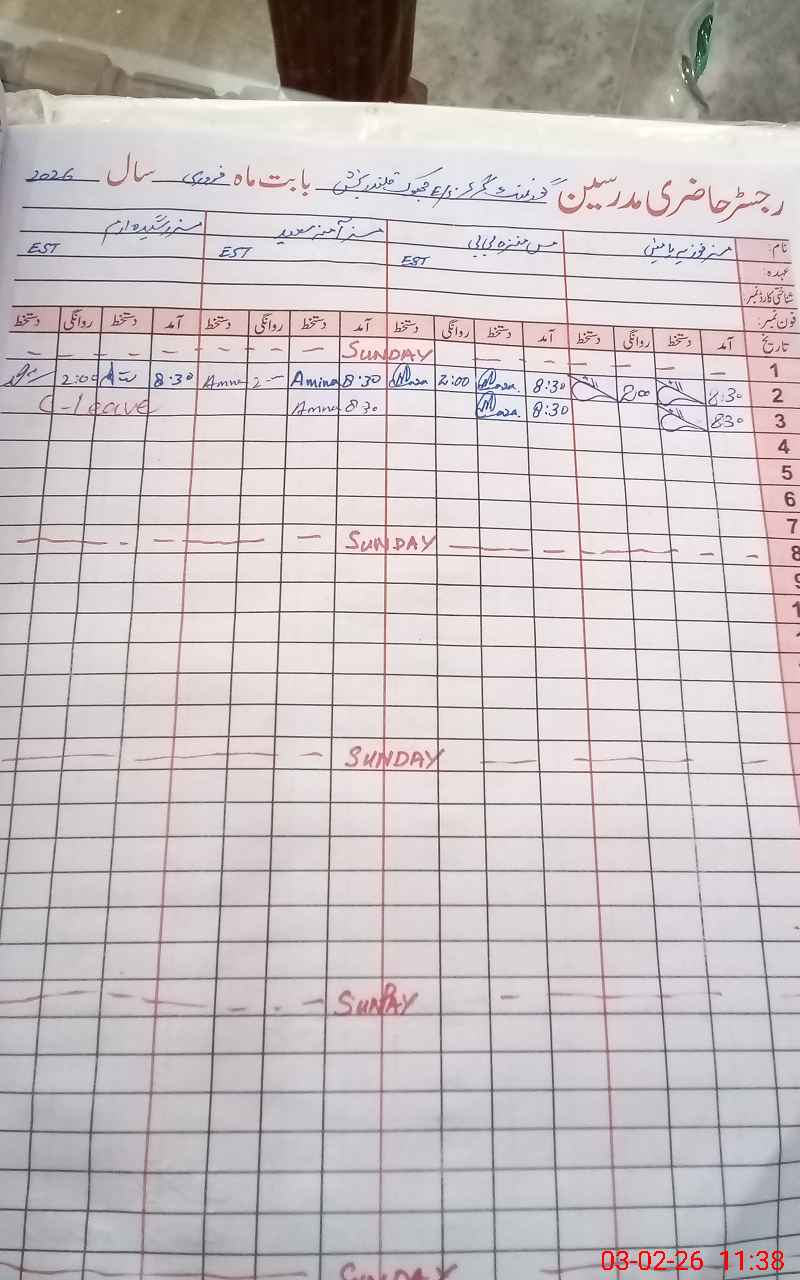 رجسٹر حاضری مدرسین گورنمنٹ گرلز E/S چکوک قلندر بخش بابت ماہ فروری سال 2026
نام: مسز فوزیہ یاسمین مس منزہ بی بی مسز آمنہ سعید مسز رشیدہ ارم
عہدہ: EST EST EST
شناختی کارڈ نمبر:
فون نمبر:
تاریخ آمد دستخط روانگی دستخط آمد دستخط روانگی دستخط آمد دستخط روانگی دستخط آمد دستخط روانگی دستخط
1 SUNDAY
2 8:30 2:00 8:30 2:00 8:30 Amina 2 Amna 8:30 2:00
3 830 8:30 8 30 Amna C-leave
4
5
6
7
8 SUNDAY
SUNDAY
SUNDAY
SUNDAY
03-02-26 11:38